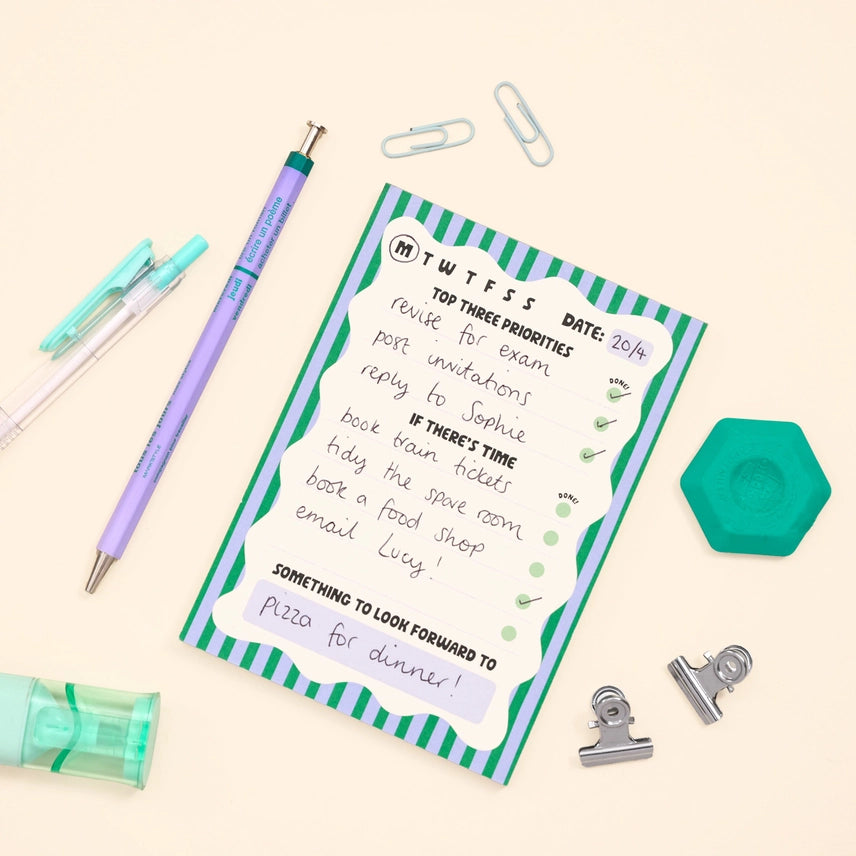 M T W T F S S
DATE: 20/4
TOP THREE PRIORITIES
DONE!
revise for exam
post invitations
reply to Sophie
IF THERE'S TIME
DONE!
book train tickets
tidy the spare room
book a food shop
email Lucy!
SOMETHING TO LOOK FORWARD TO
pizza for dinner!
jeudi
écrire un poème
vendredi
acheter un billet
tous les jours